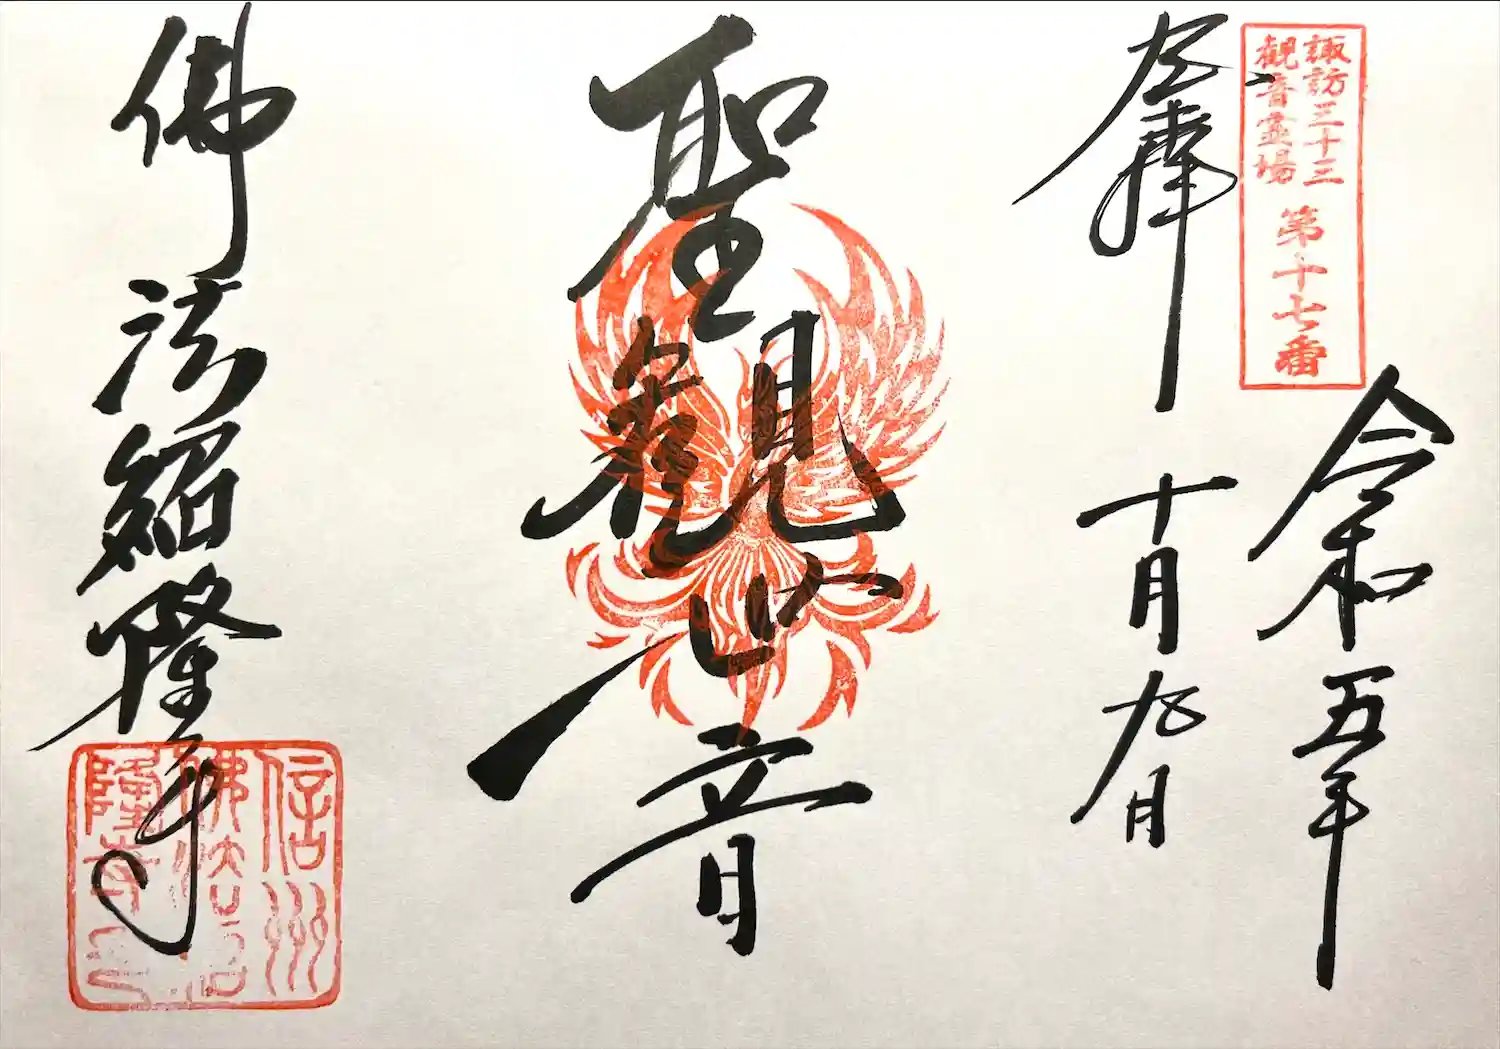 諏訪三十三
観音霊場
第十七番
奉拝
令和五年
十月九日
聖觀世音
佛法紹隆寺
信州
佛法紹
隆寺印